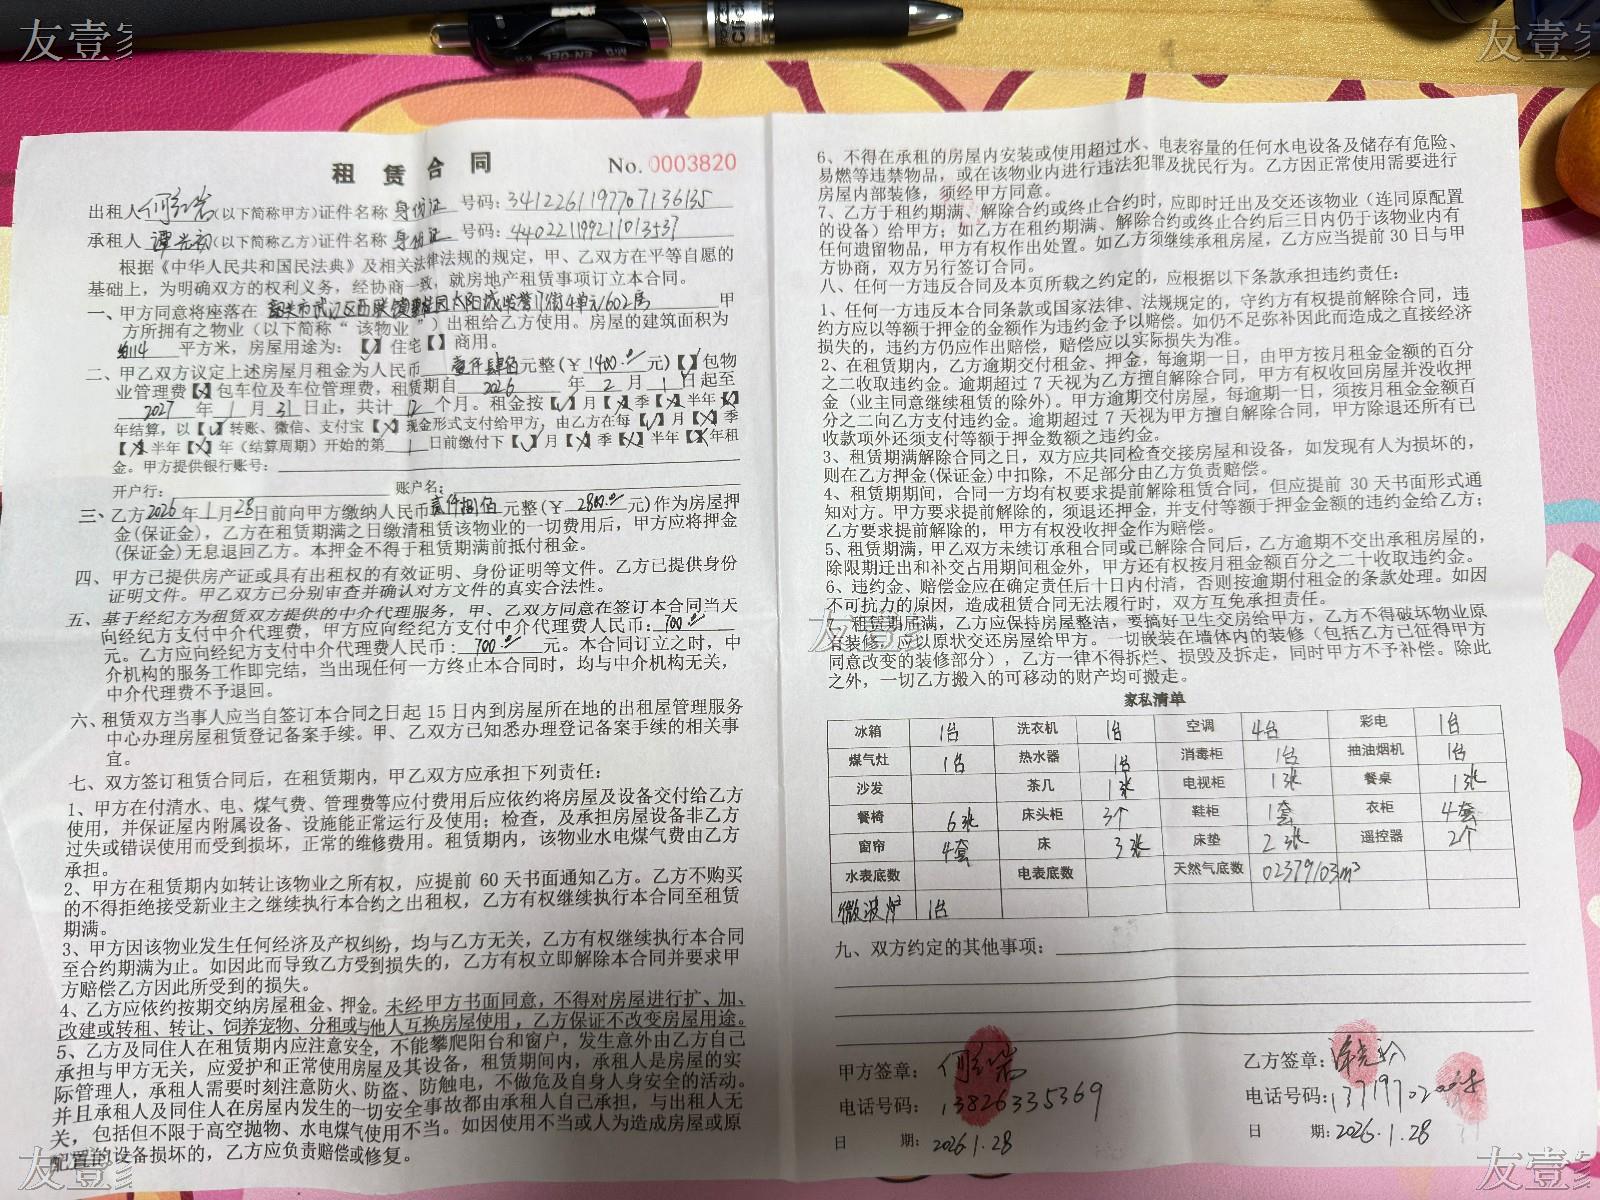 友壹家
友壹家
租 赁 合 同 No. 0003820
出租人 何红岩 (以下简称甲方)证件名称 身份证 号码: 3412261197707136135
承租人 谭光初 (以下简称乙方)证件名称 身份证 号码: 440221199211013537
根据《中华人民共和国民法典》及相关法律法规的规定，甲、乙双方在平等自愿的
基础上，为明确双方的权利义务，经协商一致，就房地产租赁事项订立本合同。
一、甲方同意将座落在 韶关市武江区西联镇 太阳城 街4单元1602房 甲
方所拥有之物业（以下简称“ 该物业 ”）出租给乙方使用。房屋的建筑面积为
约114 平方米，房屋用途为：【√】住宅【 】商用。
二、甲乙双方议定上述房屋月租金为人民币 壹仟肆佰 元整(￥ 1400.00 元)【 】包物
业管理费【X】包车位及车位管理费，租赁期自 2026 年 2 月 1 日起至
2027 年 1 月 31 日止，共计 12 个月。租金按【√】月【X】季【X】半年【X】
年结算，以【√】转账、微信、支付宝【X】现金形式支付给甲方，由乙方在每【√】月【X】季
【X】半年【X】年（结算周期）开始的第 1 日前缴付下【√】月【X】季【X】半年【X】年租
金。甲方提供银行账号：
开户行： 账户名：
三、乙方2026年1月28日前向甲方缴纳人民币贰仟捌佰元整(￥ 2800.00 元)作为房屋押
金(保证金)，乙方在租赁期满之日缴清租赁该物业的一切费用后，甲方应将押金
(保证金)无息退回乙方。本押金不得于租赁期满前抵付租金。
四、甲方已提供房产证或具有出租权的有效证明、身份证明等文件。乙方已提供身份
证明文件。甲乙双方已分别审查并确认对方文件的真实合法性。
五、基于经纪方为租赁双方提供的中介代理服务，甲、乙双方同意在签订本合同当天
向经纪方支付中介代理费，甲方应向经纪方支付中介代理费人民币：700.00
元。乙方应向经纪方支付中介代理费人民币：700.00元。本合同订立之时，中
介机构的服务工作即完结，当出现任何一方终止本合同时，均与中介机构无关，
中介代理费不予退回。
六、租赁双方当事人应当自签订本合同之日起 15 日内到房屋所在地的出租屋管理服务
中心办理房屋租赁登记备案手续。甲、乙双方已知悉办理登记备案手续的相关事
宜。
七、双方签订租赁合同后，在租赁期内，甲乙双方应承担下列责任：
1、甲方在付清水、电、煤气费、管理费等应付费用后应依约将房屋及设备交付给乙方
使用，并保证屋内附属设备、设施能正常运行及使用；检查，及承担房屋设备非乙方
过失或错误使用而受到损坏，正常的维修费用。租赁期内，该物业水电煤气费由乙方
承担。
2、甲方在租赁期内如转让该物业之所有权，应提前 60 天书面通知乙方。乙方不购买
的不得拒绝接受新业主之继续执行本合约之出租权，乙方有权继续执行本合同至租赁
期满。
3、甲方因该物业发生任何经济及产权纠纷，均与乙方无关，乙方有权继续执行本合同
至合约期满为止。如因此而导致乙方受到损失的，乙方有权立即解除本合同并要求甲
方赔偿乙方因此所受到的损失。
4、乙方应依约按期交纳房屋租金、押金。未经甲方书面同意，不得对房屋进行扩、加、
改建或转租、转让、饲养宠物、分租或与他人互换房屋使用，乙方保证不改变房屋用途。
5、乙方及同住人在租赁期内应注意安全，不能攀爬阳台和窗户，发生意外由乙方自己
承担与甲方无关，应爱护和正常使用房屋及其设备，租赁期间内，承租人是房屋的实
际管理人，承租人需要时刻注意防火、防盗、防触电，不做危及自身人身安全的活动。
并且承租人及同住人在房屋内发生的一切安全事故都由承租人自己承担，与出租人无
关，包括但不限于高空抛物、水电煤气使用不当。如因使用不当或人为造成房屋或原
配置的设备损坏的，乙方应负责赔偿或修复。
6、不得在承租的房屋内安装或使用超过水、电表容量的任何水电设备及储存有危险、
易燃等违禁物品，或在该物业内进行违法犯罪及扰民行为。乙方因正常使用需要进行
房屋内部装修，须经甲方同意。
7、乙方于租约期满、解除合约或终止合约时，应即时迁出及交还该物业（连同原配置
的设备）给甲方；如乙方在租约期满、解除合约或终止合约后三日内仍于该物业内有
任何遗留物品，甲方有权作出处置。如乙方须继续承租房屋，乙方应当提前 30 日与甲
方协商，双方另行签订合同。
八、任何一方违反合同及本页所载之约定的，应根据以下条款承担违约责任：
1、任何一方违反本合同条款或国家法律、法规规定的，守约方有权提前解除合同，违
约方应以等额于押金的金额作为违约金予以赔偿。如仍不足弥补因此而造成之直接经济
损失的，违约方仍应作出赔偿，赔偿应以实际损失为准。
2、在租赁期内，乙方逾期交付租金、押金，每逾期一日，由甲方按月租金金额的百分
之二收取违约金。逾期超过 7 天视为乙方擅自解除合同，甲方有权收回房屋并没收押
金（业主同意继续租赁的除外）。甲方逾期交付房屋，每逾期一日，须按月租金金额百
分之二向乙方支付违约金。逾期超过 7 天视为甲方擅自解除合同，甲方除退还所有已
收款项外还须支付等额于押金数额之违约金。
3、租赁期满解除合同之日，双方应共同检查交接房屋和设备，如发现有人为损坏的，
则在乙方押金(保证金)中扣除，不足部分由乙方负责赔偿。
4、租赁期期间，合同一方均有权要求提前解除租赁合同，但应提前 30 天书面形式通
知对方。甲方要求提前解除的，须退还押金，并支付等额于押金金额的违约金给乙方；
乙方要求提前解除的，甲方有权没收押金作为赔偿。
5、租赁期满，甲乙双方未续订承租合同或已解除合同后，乙方逾期不交出承租房屋的，
除限期迁出和补交占用期间租金外，甲方还有权按月租金额百分之二十收取违约金。
6、违约金、赔偿金应在确定责任后十日内付清，否则按逾期付租金的条款处理。如因
不可抗力的原因，造成租赁合同无法履行时，双方互免承担责任。
7、租赁期届满，乙方应保持房屋整洁，要搞好卫生交房给甲方，乙方不得破坏物业原
有装修，应以原状交还房屋给甲方。一切嵌装在墙体内的装修（包括乙方已征得甲方
同意改变的装修部分），乙方一律不得拆烂、损毁及拆走，同时甲方不予补偿。除此
之外，一切乙方搬入的可移动的财产均可搬走。
家私清单
冰箱 1台 洗衣机 1台 空调 4台 彩电 1台
煤气灶 1台 热水器 1台 消毒柜 1台 抽油烟机 1台
沙发 茶几 1张 电视柜 1张 餐桌 1张
餐椅 6张 床头柜 3个 鞋柜 1套 衣柜 4套
窗帘 4套 床 3张 床垫 2张 遥控器 2个
水表底数 电表底数 天然气底数 02379103m³
微波炉 1台
九、双方约定的其他事项：
甲方签章：何红岩
电话号码：13826335369
日 期：2026.1.28
乙方签章：
电话号码：
日 期：2026.1.28
友壹家
友壹家
友壹家